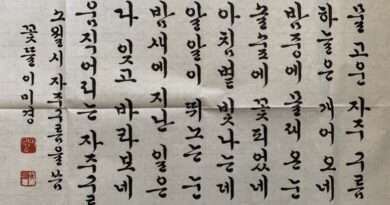 물 고은 자주 구름
하늘은 개어 오네
밤중에 몰래 온 눈
솔숲에 꽃피었네
아침볕 빛나는데
알알이 뛰노는 눈
밤새에 지난 일은
다 잊고 바라보네
움직어리는 자주구름
소월 시 자주구름을 씀
꽃뜰 이미경